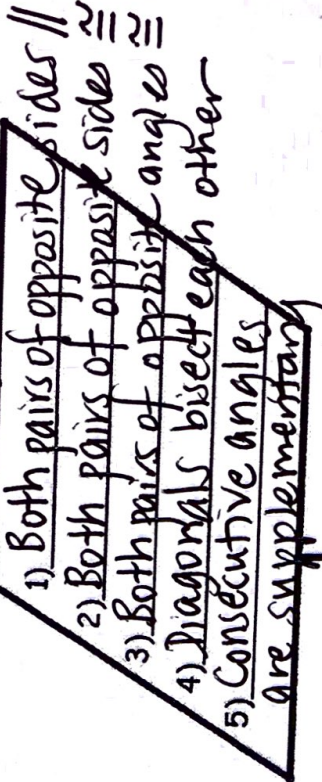 1) Both pairs of opposite sides //
2) Both pairs of opposite sides ≅
3) Both pairs of opposite angles ≅
4) Diagonals bisect each other
5) Consecutive angles
are supplementary